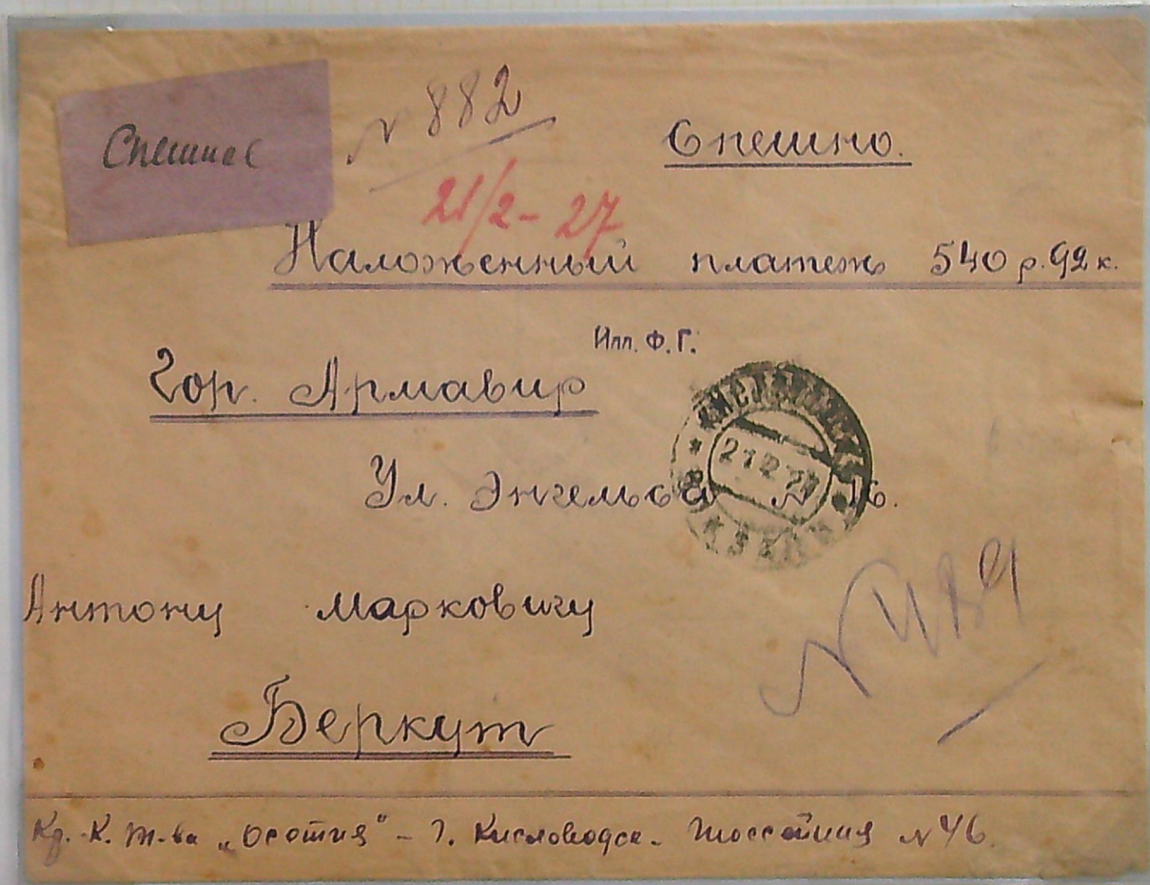 Спешное
N 882
Спешно.
21/2-27
Наложенный платеж 540 р. 92 к.
Илл. Ф. Г.
Гор. Армавир
Ул. Энгельса N
КИСЛОВОДСК
21 2 27
Антону Марковичу
N
Беркут
К. Т-ва „Осотия" - г. Кисловодск. Шоссейная N 46.